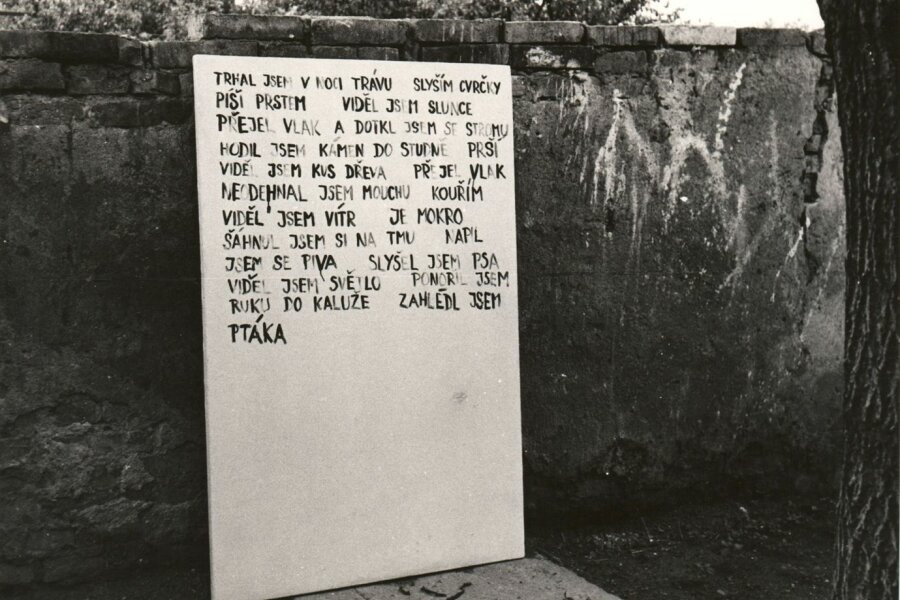 TRHAL JSEM V NOCI TRÁVU SLYŠÍM CVRČKY
PÍŠI PRSTEM VIDĚL JSEM SLUNCE
PŘEJEL VLAK A DOTKL JSEM SE STROMU
HODIL JSEM KÁMEN DO STUDNĚ PRŠÍ
VIDĚL JSEM KUS DŘEVA PŘEJEL VLAK
NEODEHNAL JSEM MOUCHU KOUŘÍM
VIDĚL JSEM VÍTR JE MOKRO
ŠÁHNUL JSEM SI NA TMU NAPIL
JSEM SE PIVA SLYŠEL JSEM PSA
VIDĚL JSEM SVĚTLO PONOŘIL JSEM
RUKU DO KALUŽE ZAHLÉDL JSEM
PTÁKA